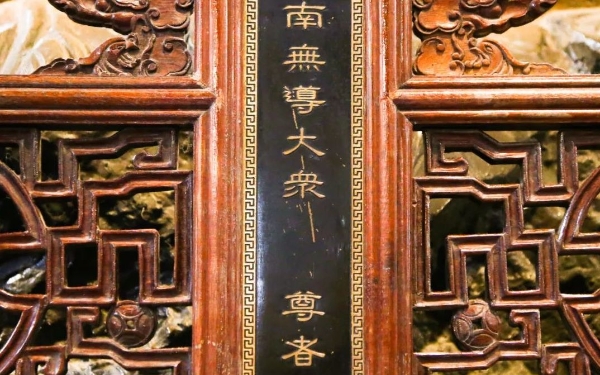 南無導大眾 尊者